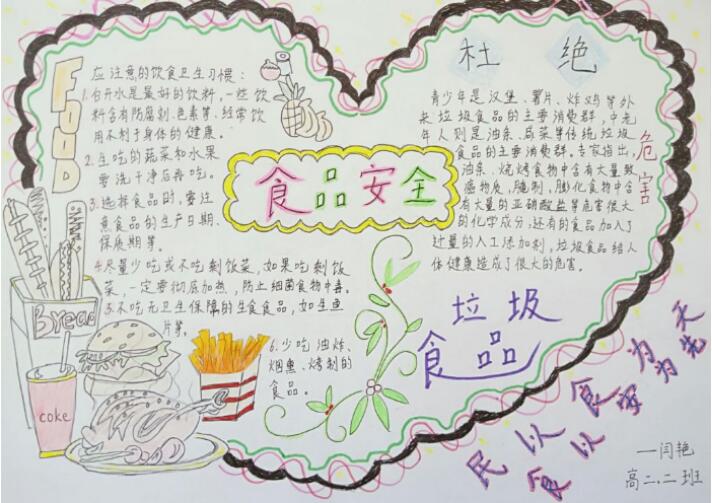 FOOD
应注意的饮食卫生习惯：
1.白开水是最好的饮料，一些饮
料含有防腐剂、色素等，经常饮
用不利于身体的健康。
2.生吃的蔬菜和水果
要洗干净后再吃。
3.选择食品时，要注
意食品的生产日期、
保质期等。
4.尽量少吃或不吃剩饭菜，如果吃剩饭
菜，一定要彻底加热，防止细菌食物中毒。
5.不吃无卫生保障的生食食品，如生鱼
片等。
6.少吃油炸、
烟熏、烤制的
食品。
Bread
coke
食品安全
杜绝
青少年是汉堡、薯片、炸鸡等外
来垃圾食品的主要消费群，中老
年人则是油条、咸菜等传统垃圾
食品的主要消费群。专家指出，
油条、烧烤食物中含有大量致
癌物质，腌制、膨化食物中含
有大量的亚硝酸盐等危害很大
的化学成分，还有的食品加入了
过量的人工添加剂，垃圾食品给人
体健康造成了很大的危害。
危害
垃圾
食品
民以食为天
食以安为先
—闫艳
高二.二班